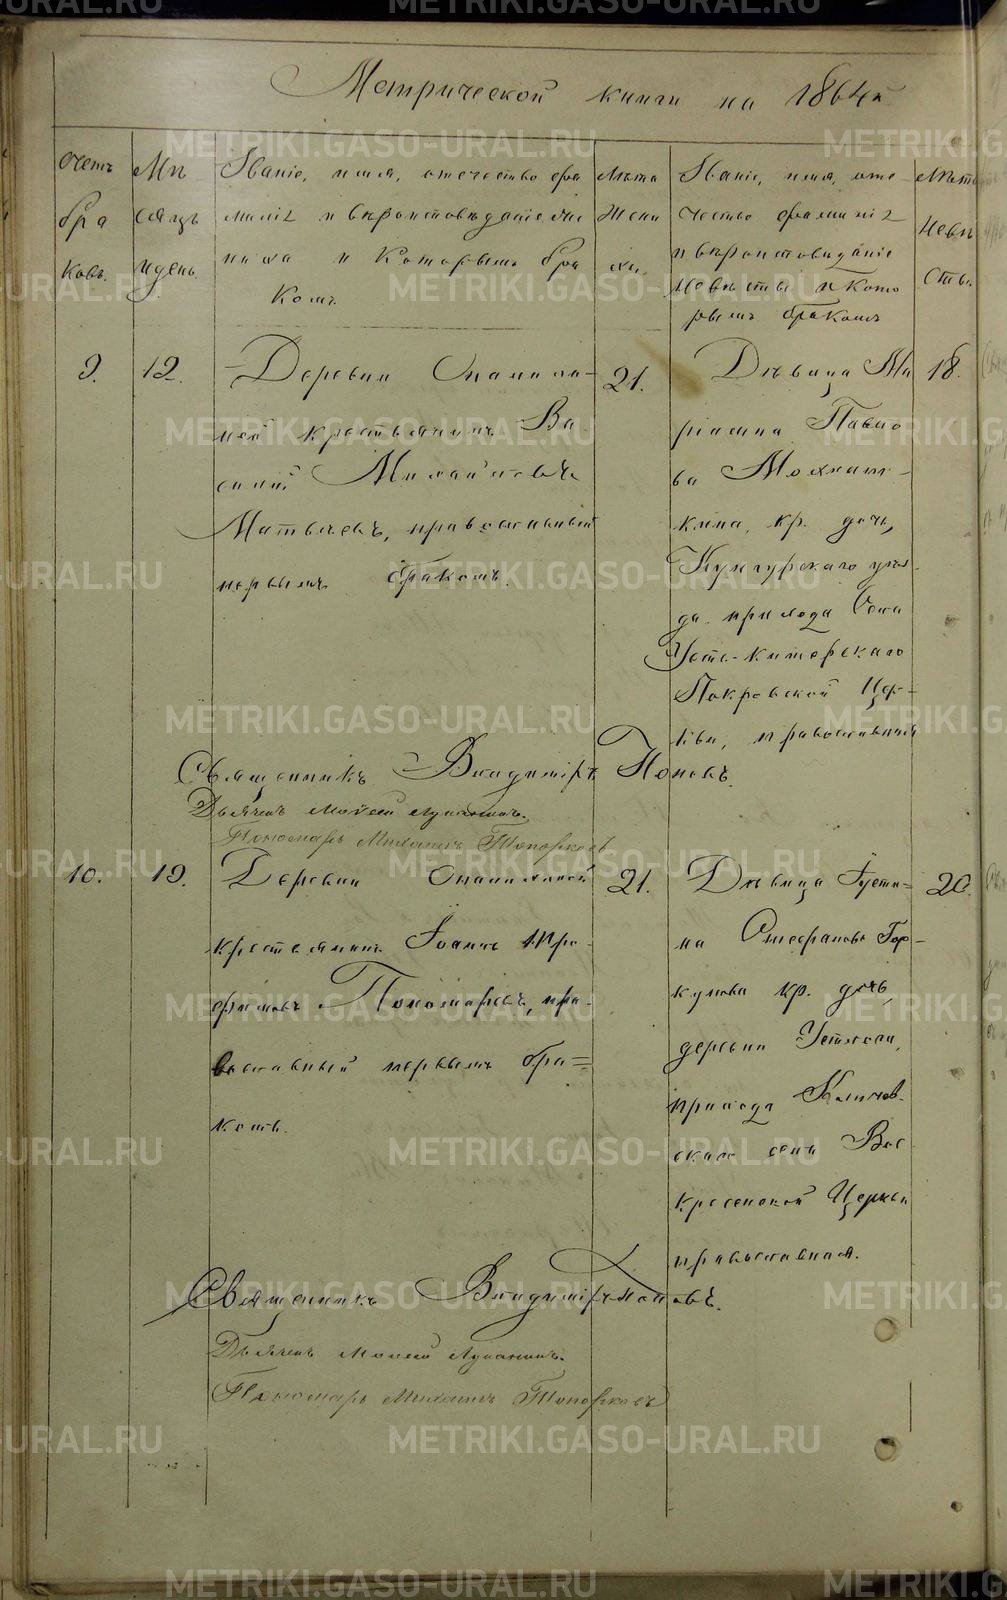 Метрической книги на 1864й
Счетъ браковъ.
Мѣсяцъ и день.
Званіе, имя, отечество фамилія и вѣроисповѣданіе жениха и которымъ бракомъ.
Лѣта жениха.
Званіе, имя, отечество фамилія и вѣроисповѣданіе невѣсты и которымъ бракомъ
Лѣта невѣсты.
9.
12.
Деревни
крестьянинъ Ва-
силій Михайловъ
Матвѣевъ, православный
первымъ бракомъ.
21.
Дѣвица Ма
ріамна Павло
ва
кина, кр. дочь,
Кунгурскаго уѣз-
да. прихода Села
Усть-Кишерскаго
Покровской Цер-
кви, православная
18.
Священникъ Владиміръ Поповъ.
Дьячекъ Моисей Лукинъ.
Пономарь Михаилъ Топорковъ
10.
19.
Деревни
крестьянинъ Іоаннъ Про-
фимовъ Пономаревъ, пра-
вославный первымъ бра-
комъ.
21.
Дѣвица Густи-
на Стефанова Гор-
кунова кр. дочь,
деревни
прихода
скаго села Вос
кресенской Церкви
православная.
20.
Священникъ Владиміръ Поповъ.
Дьячекъ Моисей Лукинъ.
Пономарь Михаилъ Топорковъ
METRIKI.GASO-URAL.RU